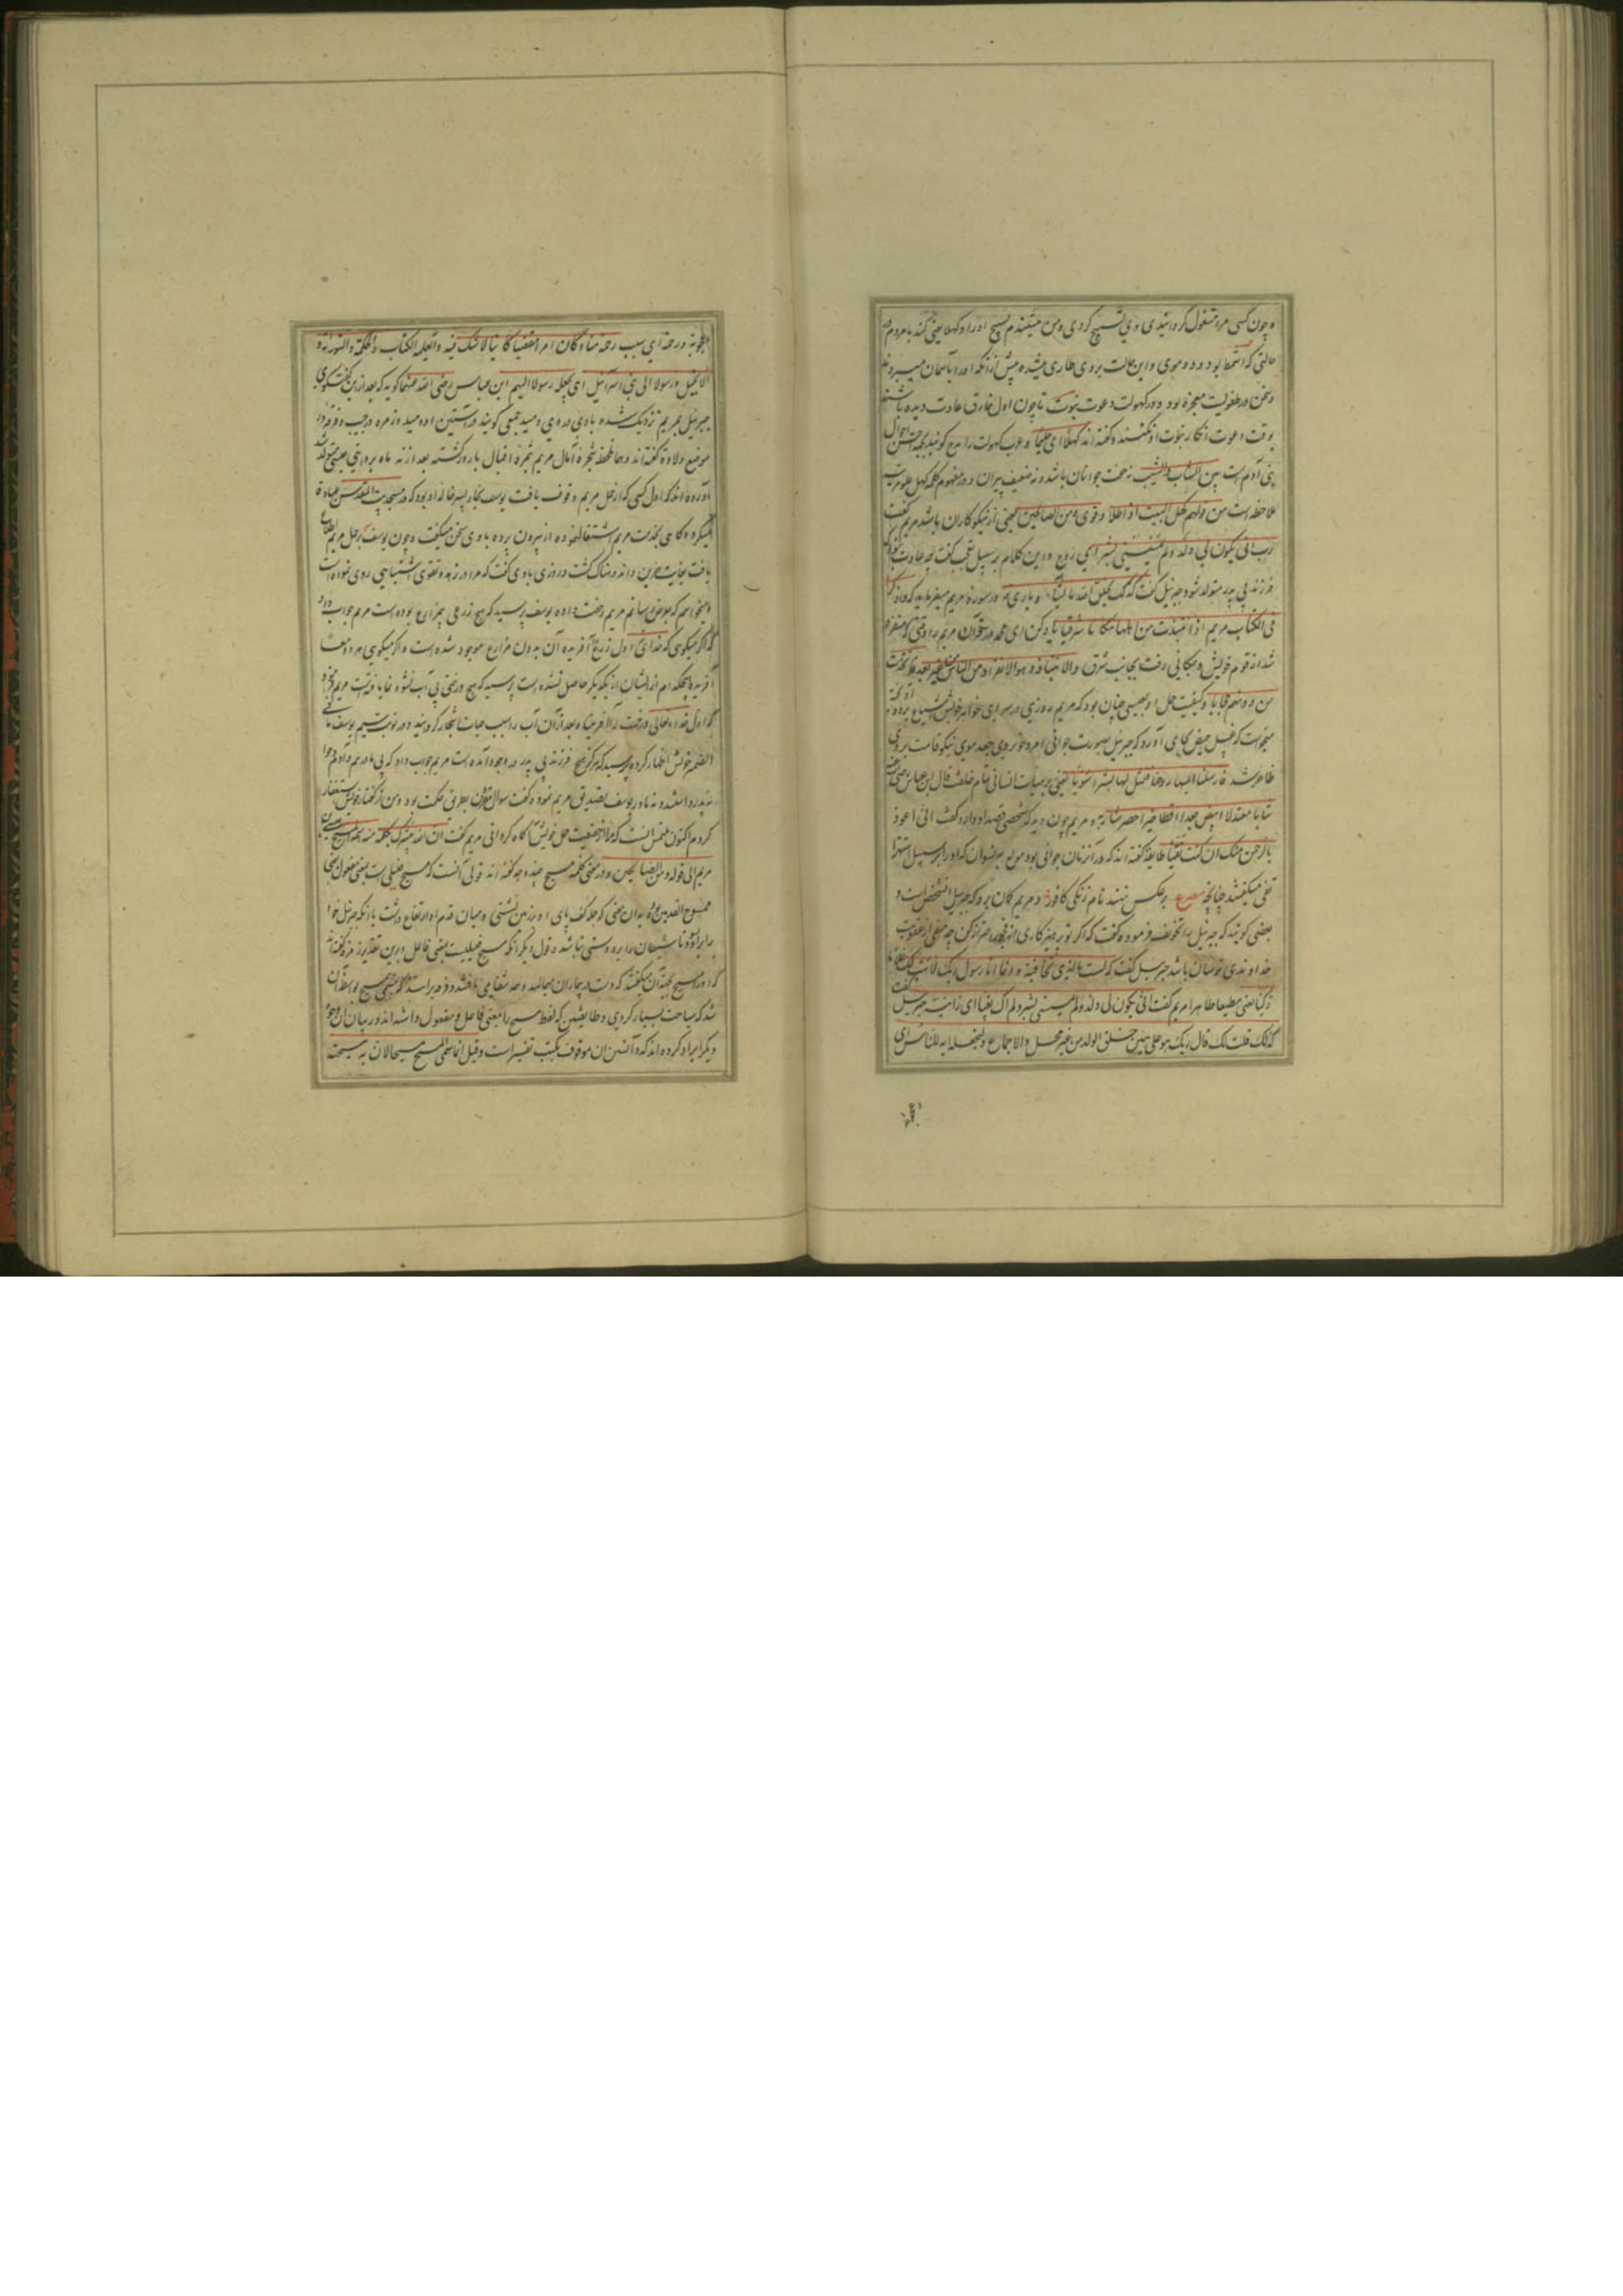 و چون کسی مرا مشغول گردانیدی وی تسبیح کردی و من میشنیدم تسبیح او را و کهلا یعنی کند با مردم در
حالتی که بود و دو موی و این حالت بر وی طاری میشده پیش از آنکه او را بآسمان میبردند
و سخن در طفولیت معجزه بود و در کهولت دعوت نبوت تا چون اول خارق عادت دیده باشند
بوقت دعوت انکار نبوت او نکنند و گفته اند کهلا ای حلیما و عرب کهولت را مدح گویند بجهة احوال
بنی آدم است بین الشاب والشیب نه خفت جوانان باشد و نه ضعیف پیران و در مفهوم کلمه کهل علو مرتبت
ملاحظه است من قولهم کهل البیت اذا طلا و قوی و من الصالحین یعنی از نیکوکاران باشد مریم گفت
رب انی یکون لی ولد ولم یمسسنی بشر ای زوج و این کلام بر سبیل تعجب گفت چه عادت
فرزند بی پدر متولد شود جبرئیل گفت که کذلک یخلق الله ما یشاء و باری در سوره مریم میفرماید که واذکر
فی الکتاب مریم اذ انتبذت من اهلها مکانا شرقیا یاد کن ای محمد در قرآن مریم را وقتی که منفرد
شد از قوم خویش و بمکانی رفت بجانب شرق والانتباذ هو الانفراد من الناس
من دونهم حجابا و کیفیت حمل او بعیسی چنان بود که مریم روزی در سرای خواهر خویش اشیاع پرده
میخواست که غسل حیض بجای آورد که جبرئیل بصورت جوانی امرد خوبروی جعد موی نیکو قامت بر وی
ظاهر شد فارسلنا الیها روحنا فتمثل لها بشرا سویا یعنی بر هیات انسانی تمام خلقت قال ابن عباس رضی
شابا معتدلا ابیض جعدا قططا اخضر شاربه و مریم چون دید که شخصی قصد او دارد گفت انی اعوذ
بالرحمن منک ان کنت تقیا طایفه گفته اند که در آن زمان جوانی بود مولع بنسوان که او را بر سبیل استهزا
تقی میگفتند چنانچه مصرع بر عکس نهند نام زنگی کافور و مریم گمان برد که جبرئیل آن شخص است و
بعضی گویند که جبرئیل را تخویف فرموده گفت که اگر تو پرهیزکاری از حذر کن چه متقی از عقوبت
خداوندی ترسان باشد جبرئیل گفت که لست بالذی تخافینه و انما انا رسول ربک لاهب لک غلاما
زکیا یعنی مطیعا طاهرا مریم گفت انی یکون لی ولد ولم یمسسنی بشر ولم اک بغیا ای زانیة جبرئیل گفت
کذلک قلت لک قال ربک هو علی هین خلق الولد من غیر محل والاجماع ولنجعله آیه للناس ای
اعجوبة و رحمة ای سبب رحمة منا و کان امرا مقضیا کاینا لا شک فیه و تعلیم الکتاب والحکمة والتوراة و
الانجیل و رسولا الی بنی اسرائیل ای نجعله رسولا الیهم ابن عباس رضی الله عنهما گوید که بعد از این گفت و گوی
جبرئیل بمریم نزدیک شده بادی در وی دمید جمعی گویند در آستین او دمید و زمره در جیب و فرقه در
موضع ولادة گفته اند و همان لحظه شجره آمال مریم بثمره اقبال بارور گشته بعد از نه ماه بروایتی عیسی متولد شد
آورده اند که اول کسی که از حمل مریم وقوف یافت یوسف نجار پسر خاله او بود که در مسجد بیت المقدس عبادة
میکرد و گاهی بخدمت مریم اشتغال نموده از بیرون پرده با وی سخن میگفت و چون یوسف بر حمل مریم اطلاع
یافت بغایت حزین و اندوهناک گشت و روزی با وی گفت که مرا در زهد و تقوی اشتباهی روی نموده است
میخواهم که بعرض رسانم مریم رخصت داده یوسف پرسید که هیچ زرعی بی زارع بوده است مریم جواب داد
که اگر میگوی که خدای اول زرع آفریده آن بدون زارع موجود شده است و اگر میگوی هر دو معا
آفریده هیچکدام از ایشان از یکدیگر حاصل نشده است پرسید که هیچ درختی بی آب نشو و نما یافته است مریم فرمود
که اول خداء تعالی درخت را آفرید و بعد از آن آب را سبب حیات اشجار گردانید و در نوبت سیم یوسف مافی
الضمیر خویش اظهار کرده پرسید که هرگز هیچ فرزند بی پدر در وجود آمده است مریم جواب داد که بی مادر هم و آدم و حوا
نه پدر داشتند و نه مادر یوسف تصدیق مریم نمود و گفت سوال من بطریق حکمت بود و من از گفتار خویش استغفار
کردم اکنون ملتمس آنست که مرا از حقیقت حمل خویش آگاه گردانی مریم گفت ان الله یبشرک بکلمة منه اسمه المسیح عیسی بن
مریم الی قوله و من الصالحین و در معنی کلمه مسیح چند وجه گفته اند قولی آنست که مسیح فعیلی است بمعنی مفعول یعنی
ممسوح القدمین بدان معنی که جمله کف پای او بر زمین نشستی و میان قدم او ارتفاع داشت یا آنکه جبرئیل
تا شیطان را بر او دستی نباشد و قول دیگر آنکه مسیح فعیلیست بمعنی فاعل و برین تقدیر زمره گفته اند
که او را مسیح بجهة آن میگفتند که دست در بیماران میمالید و همه شفا می یافتند
شد که سیاحت بسیار کردی و طایفه که لفظ مسیح را بمعنی فاعل و مفعول داشته اند در بیان آن وجوه
دیگر ایراد کرده اند که دانستن آن موقوف بکتب تفسیر است و قیل انما سمی المسیح مسیحا لانه